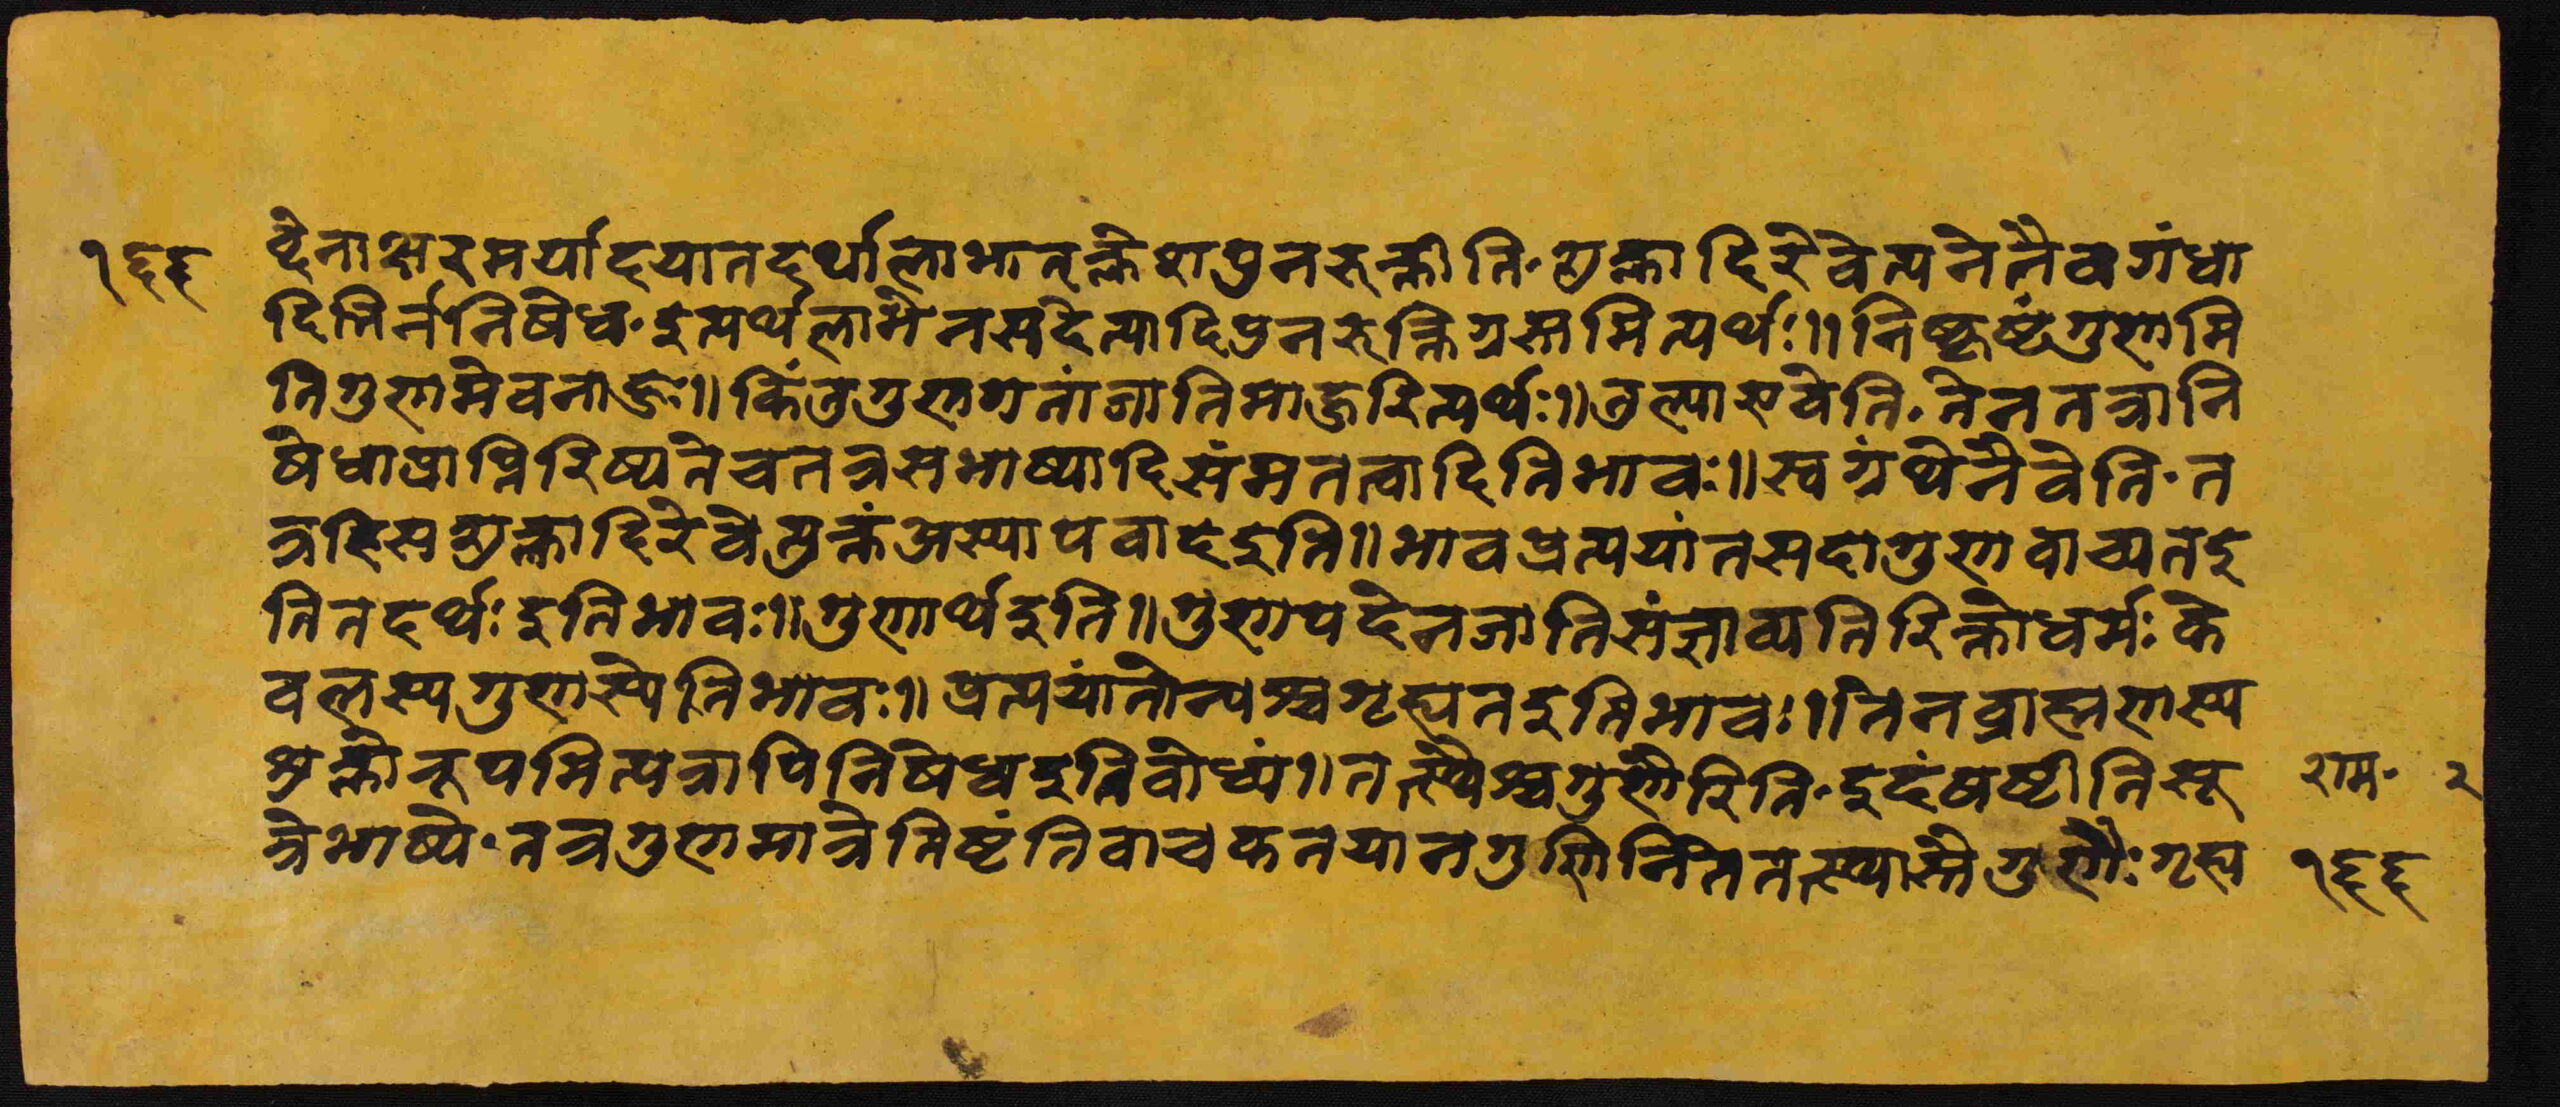 १६६
ष्टेनाक्षरमर्यादयातदर्थालाभात्क्लेशपुनरुक्तीति॰शुक्लादिरेवेत्यनेनैवगंधा
दिभिर्ननिषेध॰इत्यर्थलाभेनसहेत्यादिपुनरुक्तिग्रस्तमित्यर्थः॥निष्कृष्टंगुणमि
तिगुणमेवनाहुः॥किंतुगुणगतांजातिमाहुरित्यर्थः॥तुल्यास्त्वेति॰तेनतत्रानि
षेधाप्राप्तिरिष्यतेचतत्रसभाष्यादिसंमतत्वादितिभावः॥स्वग्रंथेनैवेति॰त
त्रहिसशुक्लादिरेवेत्युक्तंअस्यापवादइति॥भावप्रत्ययांतसदागुणवाच्यतइ
तितदर्थःइतिभावः॥गुणार्थइति॥गुणपदेनजातिसंज्ञाव्यतिरिक्तोधर्मःके
वलस्यगुणस्येतिभावः॥प्रत्ययांतोन्यश्चगृह्यतइतिभावः।तेनब्राह्मणस्य
शुक्लोरूपमित्यत्रापिनिषेधइतिबोध्यं॥तत्स्थैश्चगुणैरिति॰इदंषष्टीतिसू
त्रेभाष्ये॰तत्रगुणमात्रेतिष्टंतिवाचकतयानगुणिनितेतत्स्थास्तैगुणैःगृह्य
राम॰ २
१६६